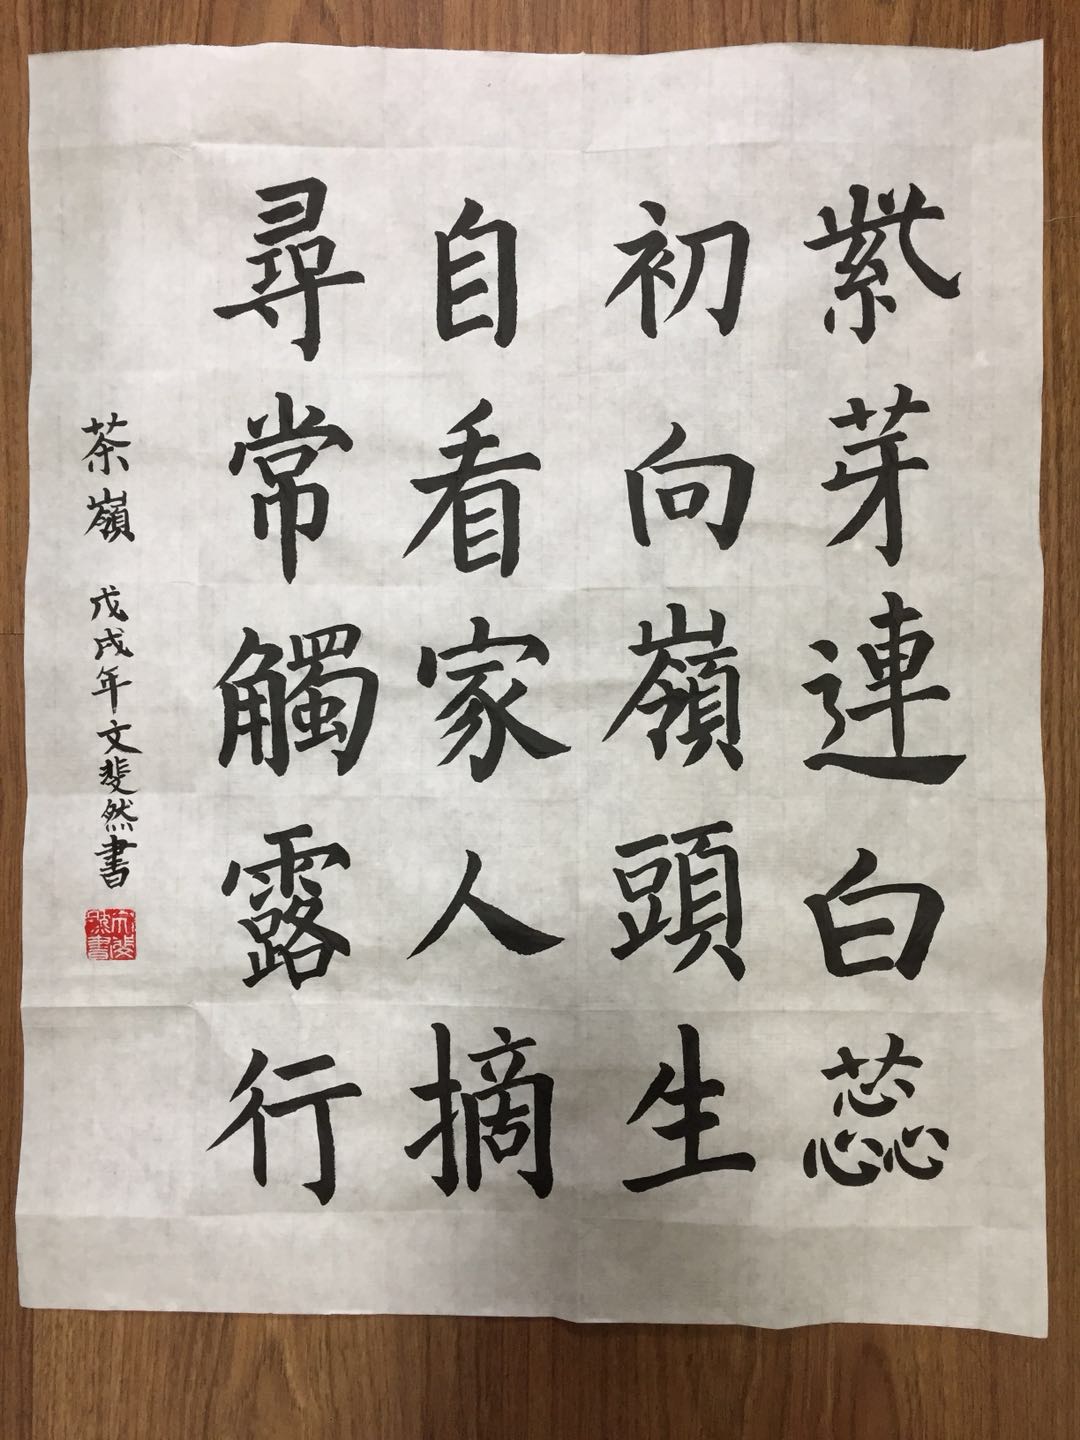 紫芽連白蕊
初向嶺頭生
自看家人摘
尋常觸露行
茶嶺 戊戌年文斐然書
文斐然書